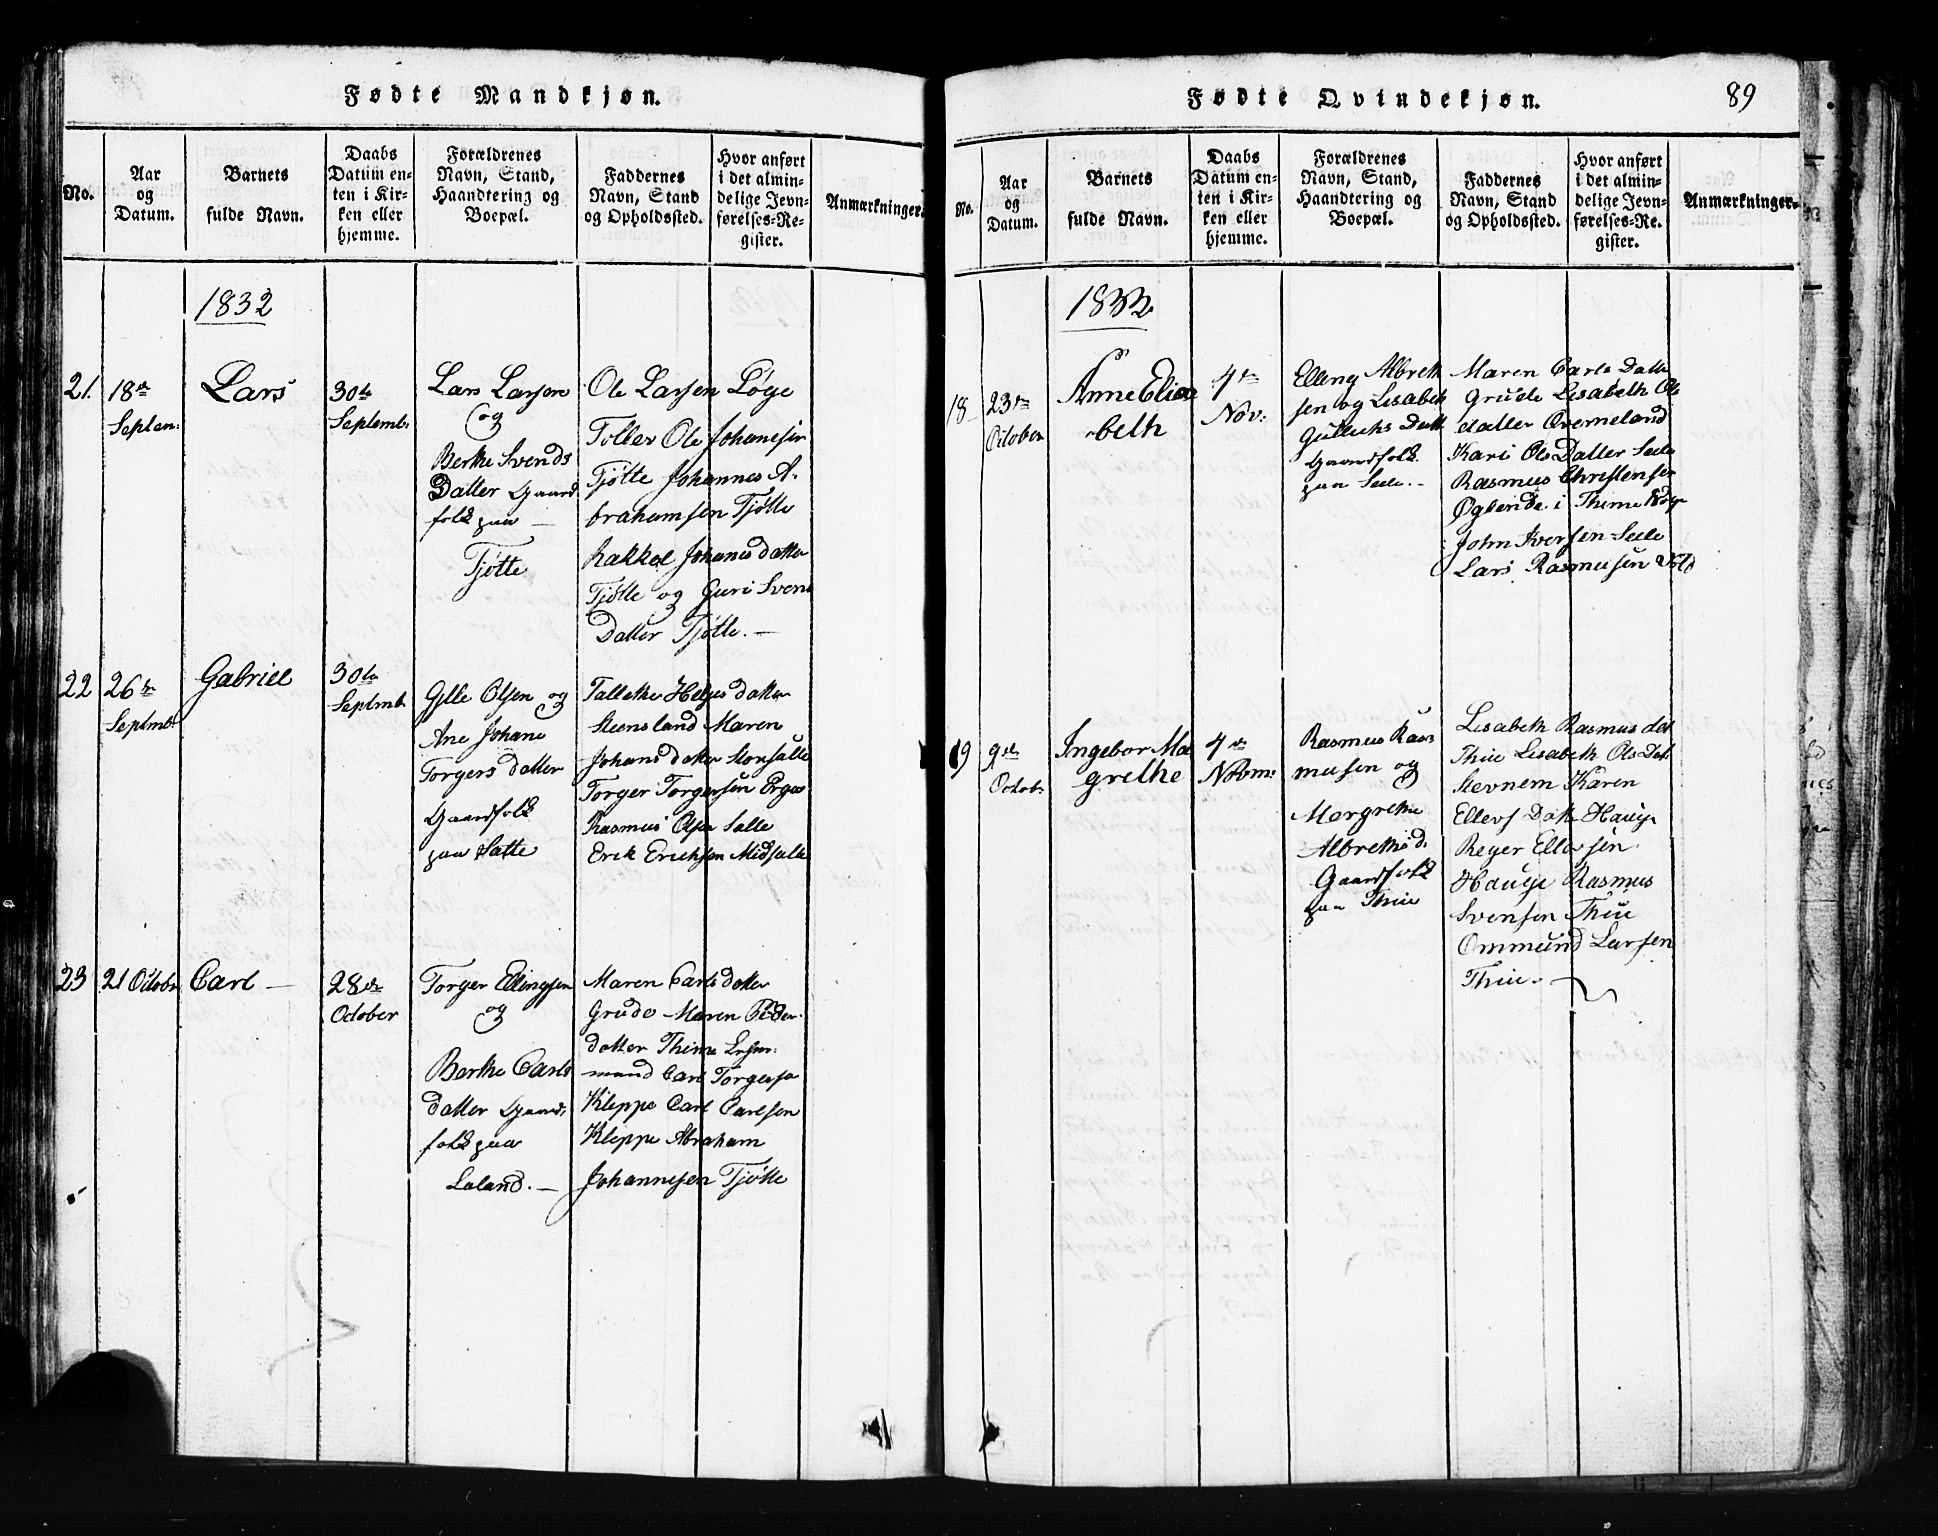 Fødte Mandkjøn.
No.
Aar
og
Datum.
Barnets
fulde Navn.
Daabs
Datum en-
ten i Kir-
ken eller
hjemme.
Forældrenes
Navn, Stand,
Haandtering og
Boepæl.
Faddernes
Navn, Stand
og Opholdssted.
Hvor anført
i det almin-
delige Jevn-
førelses-Re-
gister.
Anmærkninger.
1832
21.
18de
Septem:
Lars
30te
Septembr.
Lars Larsen
og
Berthe Svends
Datter Gaard
folk paa
Tjøtte
Ole Larsen Løge
Ole Johanesen
Tjøtte Johannes A-
brahamsen Tjøtte
Rakkel Johanes datter
Tjøtte og Guri Svens
Datter Tjøtte.
22
26de
Septmbr
Gabriel
30te
Septmb.
Olsen og
Ane Johane
Torgers datter
Gaardfolk
paa Salte
Helges datter
Steensland Maren
Johans datter
Torger Torgersen
Rasmus Olsen Salle
Erik Erichsen Midsalte
23
21 Octobr
Carl
28de
October
Torger Ellingsen
og
Berthe Carls
datter Gaard-
folk paa
Laland.
Maren Carls datter
Grude Maren Peder-
datter Thime
mand Carl Torgersen
Kleppe Carl Carlsen
Kleppe Abraham
Johannesen Tjøtte
Fødte Qvindekjøn.
89
No.
Aar
og
Datum.
Barnets
fulde Navn.
Daabs
Datum en-
ten i Kir-
ken eller
hjemme.
Forældrenes
Navn, Stand,
Haandtering og
Boepæl.
Faddernes
Navn, Stand
og Opholdssted.
Hvor anført
i det almin-
delige Jevn-
førelses-Re-
gister.
Anmærkninger.
1832.
18
23de
October
Anne Elisa
-beth
4de
Nov:
Elling Albreth
sen og Lisabeth
Gulleichs Datt
Gaardfolk
paa Seele.
Maren Carls Datter
Grude Lisabeth Ols
datter Orremeland
Kari Ols Datter Seele
Rasmus Christensen
Øglende i Thime
John Iversen Seele
Lars Rasmusen
19
9de
Octob.
Ingebor Ma
grethe
4de
Novbm:
Rasmus Ras
musen og
Margrethe
Albrethsd.
Gaardfolk
paa Thue
Lisabeth Rasmus dat
Thue Lisabeth Ols Dat.
Stevnem Karen
Ellevs Datter Hauge
Reyer Ellevsen
Hauge Rasmus
Svensen Thue
Ommund Larsen
Thue.